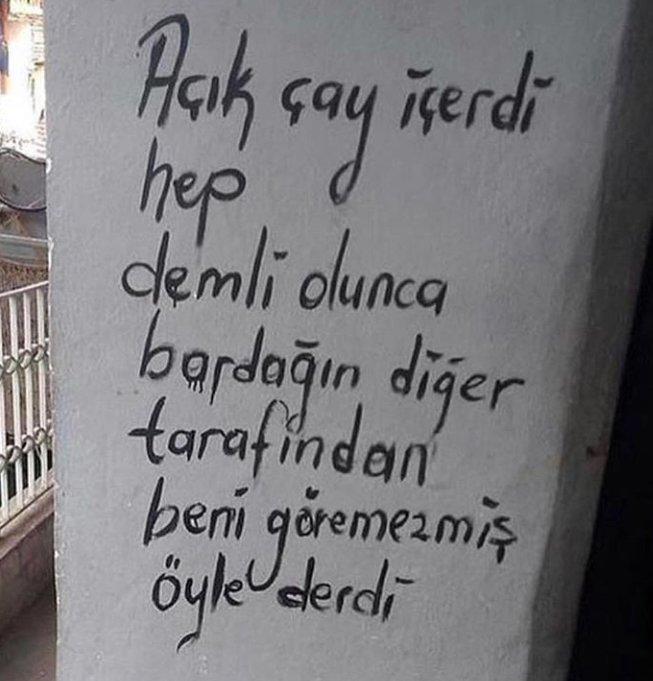 Açık çay içerdi
hep
demli olunca
bardağın diğer
tarafından
beni göremezmiş
öyle derdi